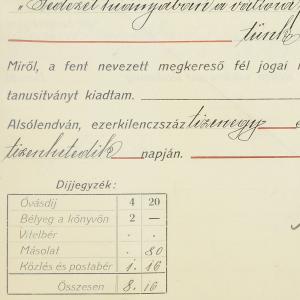 „Fedezet hiányában a váltó
tünk
Miről, a fent nevezett megkereső fél jogai
tanusitványt kiadtam.
Alsólendván, ezerkilenczszáz tizenegy
tizenhetedik napján.
Díjjegyzék:
Óvásdíj 4 20
Bélyeg a könyvön 2 —
Vitelbér . .
Másolat . 80
Közlés és postabér 1. 16
Összesen 8. 16